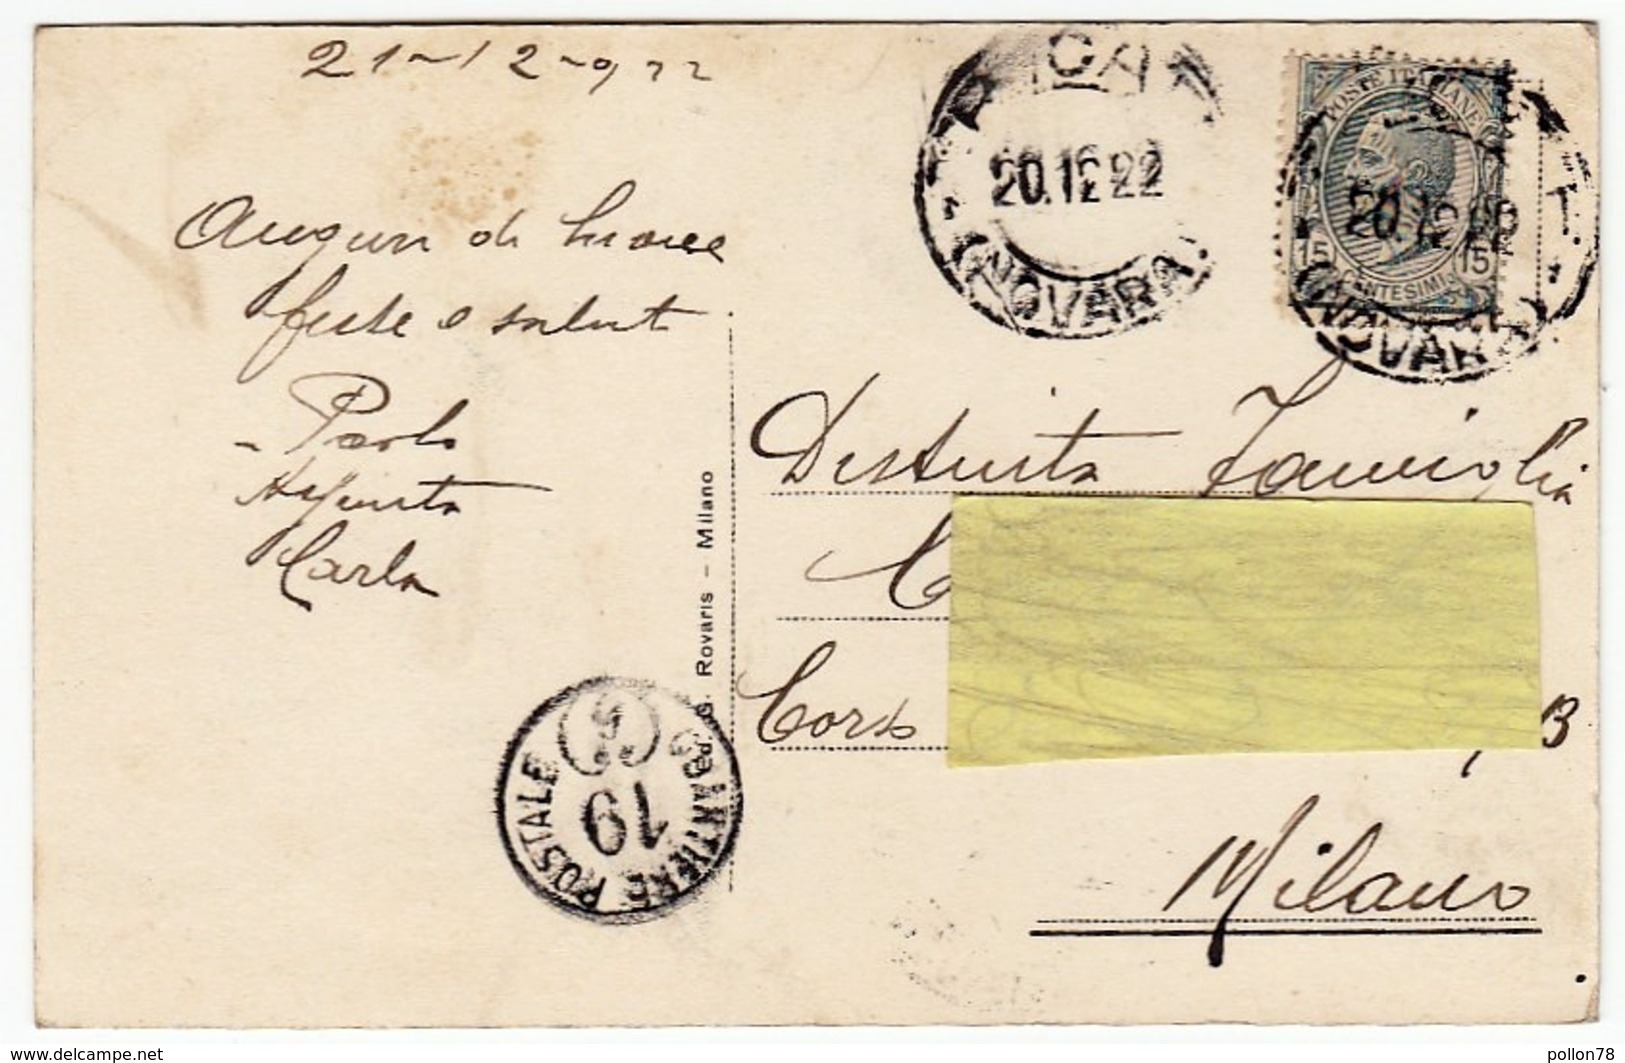 21-12-922
Auguri di buone
feste e saluti
- Paolo
Assunta
Carla
Ed. G. Rovaris - Milano
PORTALETTERE POSTALE
19
20.12.22
(NOVARA)
POSTE ITALIANE
15 CENTESIMI 15
20.12.22
(NOVARA)
Distinta Famiglia
C
Corso
13
Milano
www.delcampe.net
pollon78